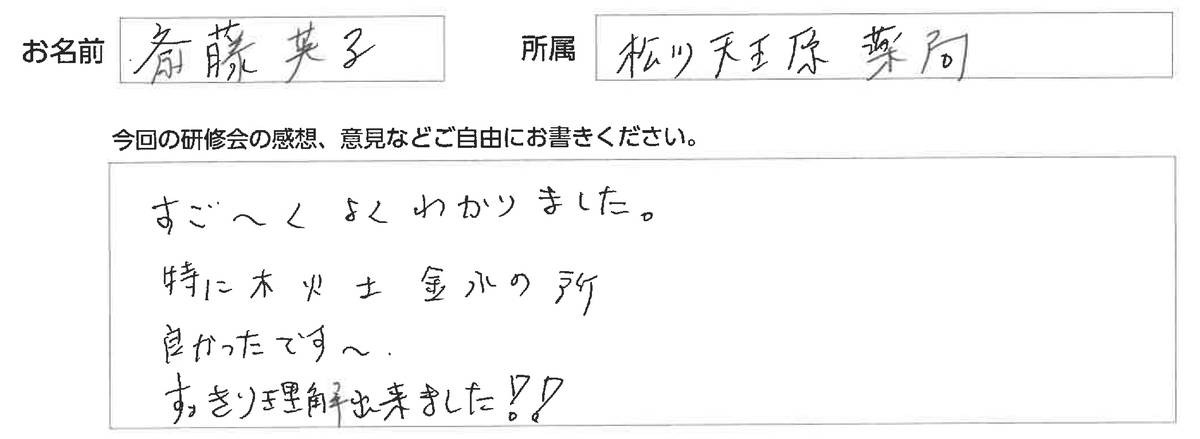 お名前 斎藤英子 所属 松川天王原薬局
今回の研修会の感想、意見などご自由にお書きください。
すご〜くよくわかりました。
特に木火土金水の所
良かったです〜.
すっきり理解出来ました!!